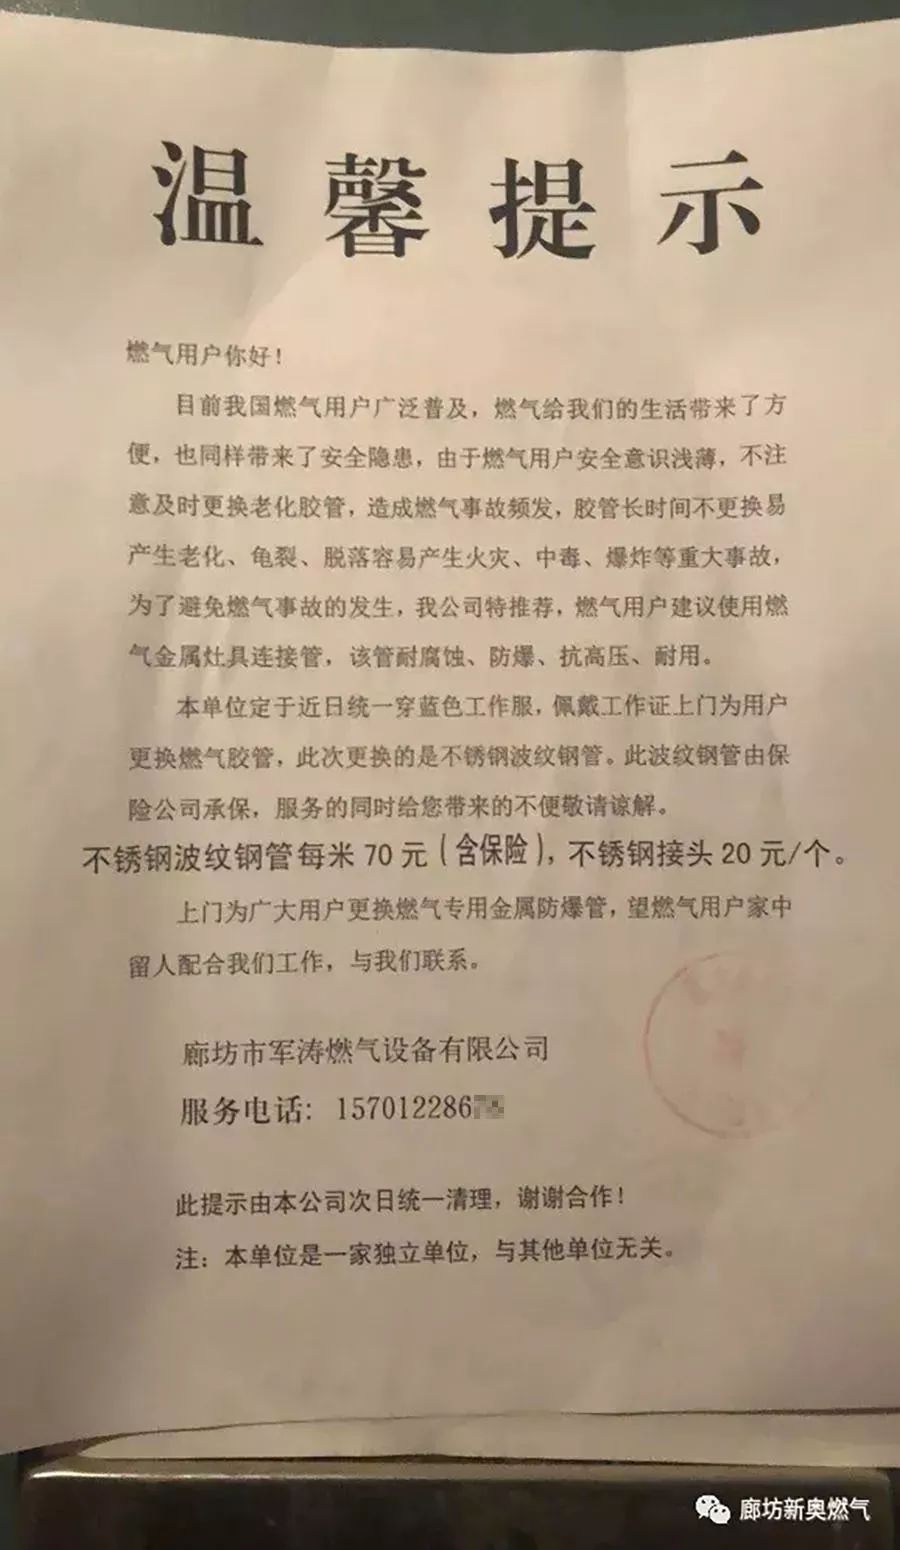 温馨提示
燃气用户你好！
目前我国燃气用户广泛普及，燃气给我们的生活带来了方
便，也同样带来了安全隐患，由于燃气用户安全意识浅薄，不注
意及时更换老化胶管，造成燃气事故频发，胶管长时间不更换易
产生老化、龟裂、脱落容易产生火灾、中毒、爆炸等重大事故，
为了避免燃气事故的发生，我公司特推荐，燃气用户建议使用燃
气金属灶具连接管，该管耐腐蚀、防爆、抗高压、耐用。
本单位定于近日统一穿蓝色工作服，佩戴工作证上门为用户
更换燃气胶管，此次更换的是不锈钢波纹钢管。此波纹钢管由保
险公司承保，服务的同时给您带来的不便敬请谅解。
不锈钢波纹钢管每米 70 元（含保险），不锈钢接头 20 元/个。
上门为广大用户更换燃气专用金属防爆管，望燃气用户家中
留人配合我们工作，与我们联系。
廊坊市军涛燃气设备有限公司
服务电话：157012286
此提示由本公司次日统一清理，谢谢合作！
注：本单位是一家独立单位，与其他单位无关。
廊坊新奥燃气